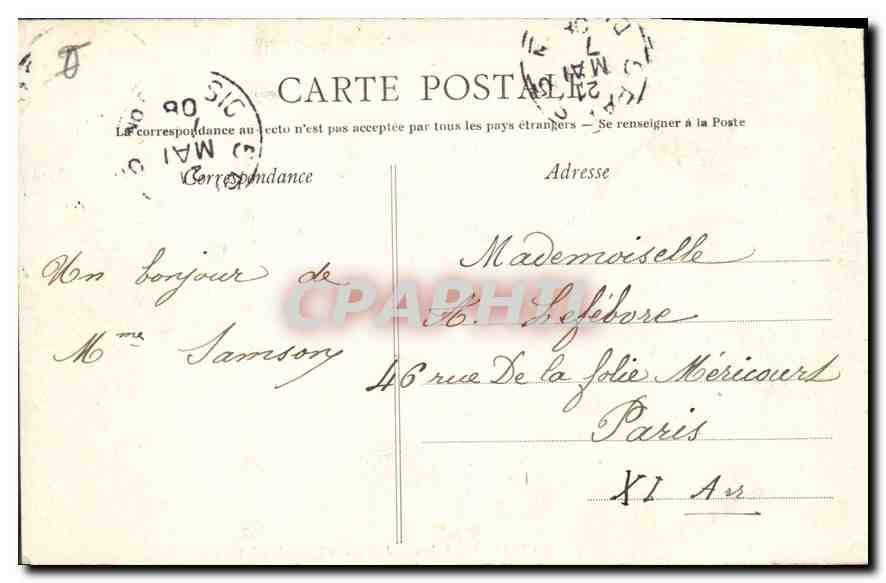 CARTE POSTALE
La correspondance au recto n'est pas acceptée par tous les pays étrangers — Se renseigner à la Poste
Correspondance
Adresse
Un bonjour de
Mme Samson
Mademoiselle
H. Lefébvre
46 rue De la folie Méricourt
Paris
XI Arr
CPAPHTI
MAI
08
21
MAI